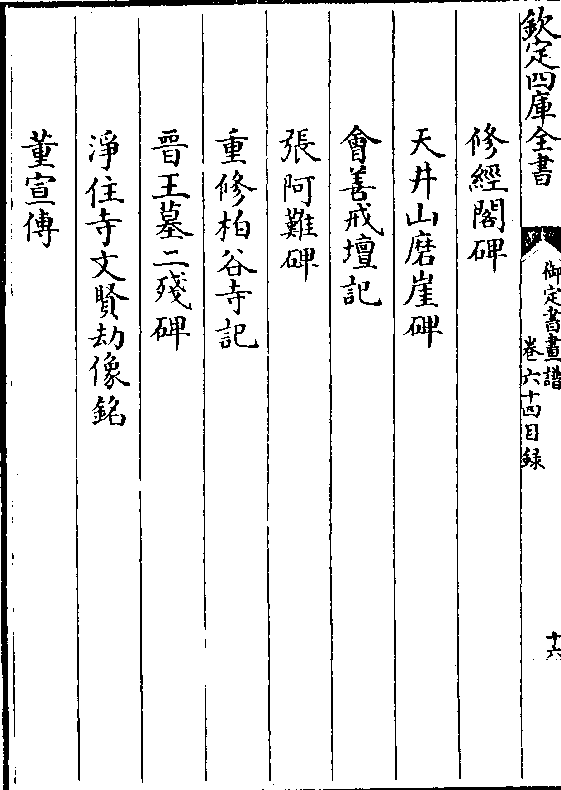 欽定四庫全書
御定書畫譜
卷六十四目録
十六
修經閣碑
天井山磨崖碑
會善戒壇記
張阿難碑
重修柏谷寺記
晋王墓二殘碑
淨住寺文賢劫像銘
董宣傳